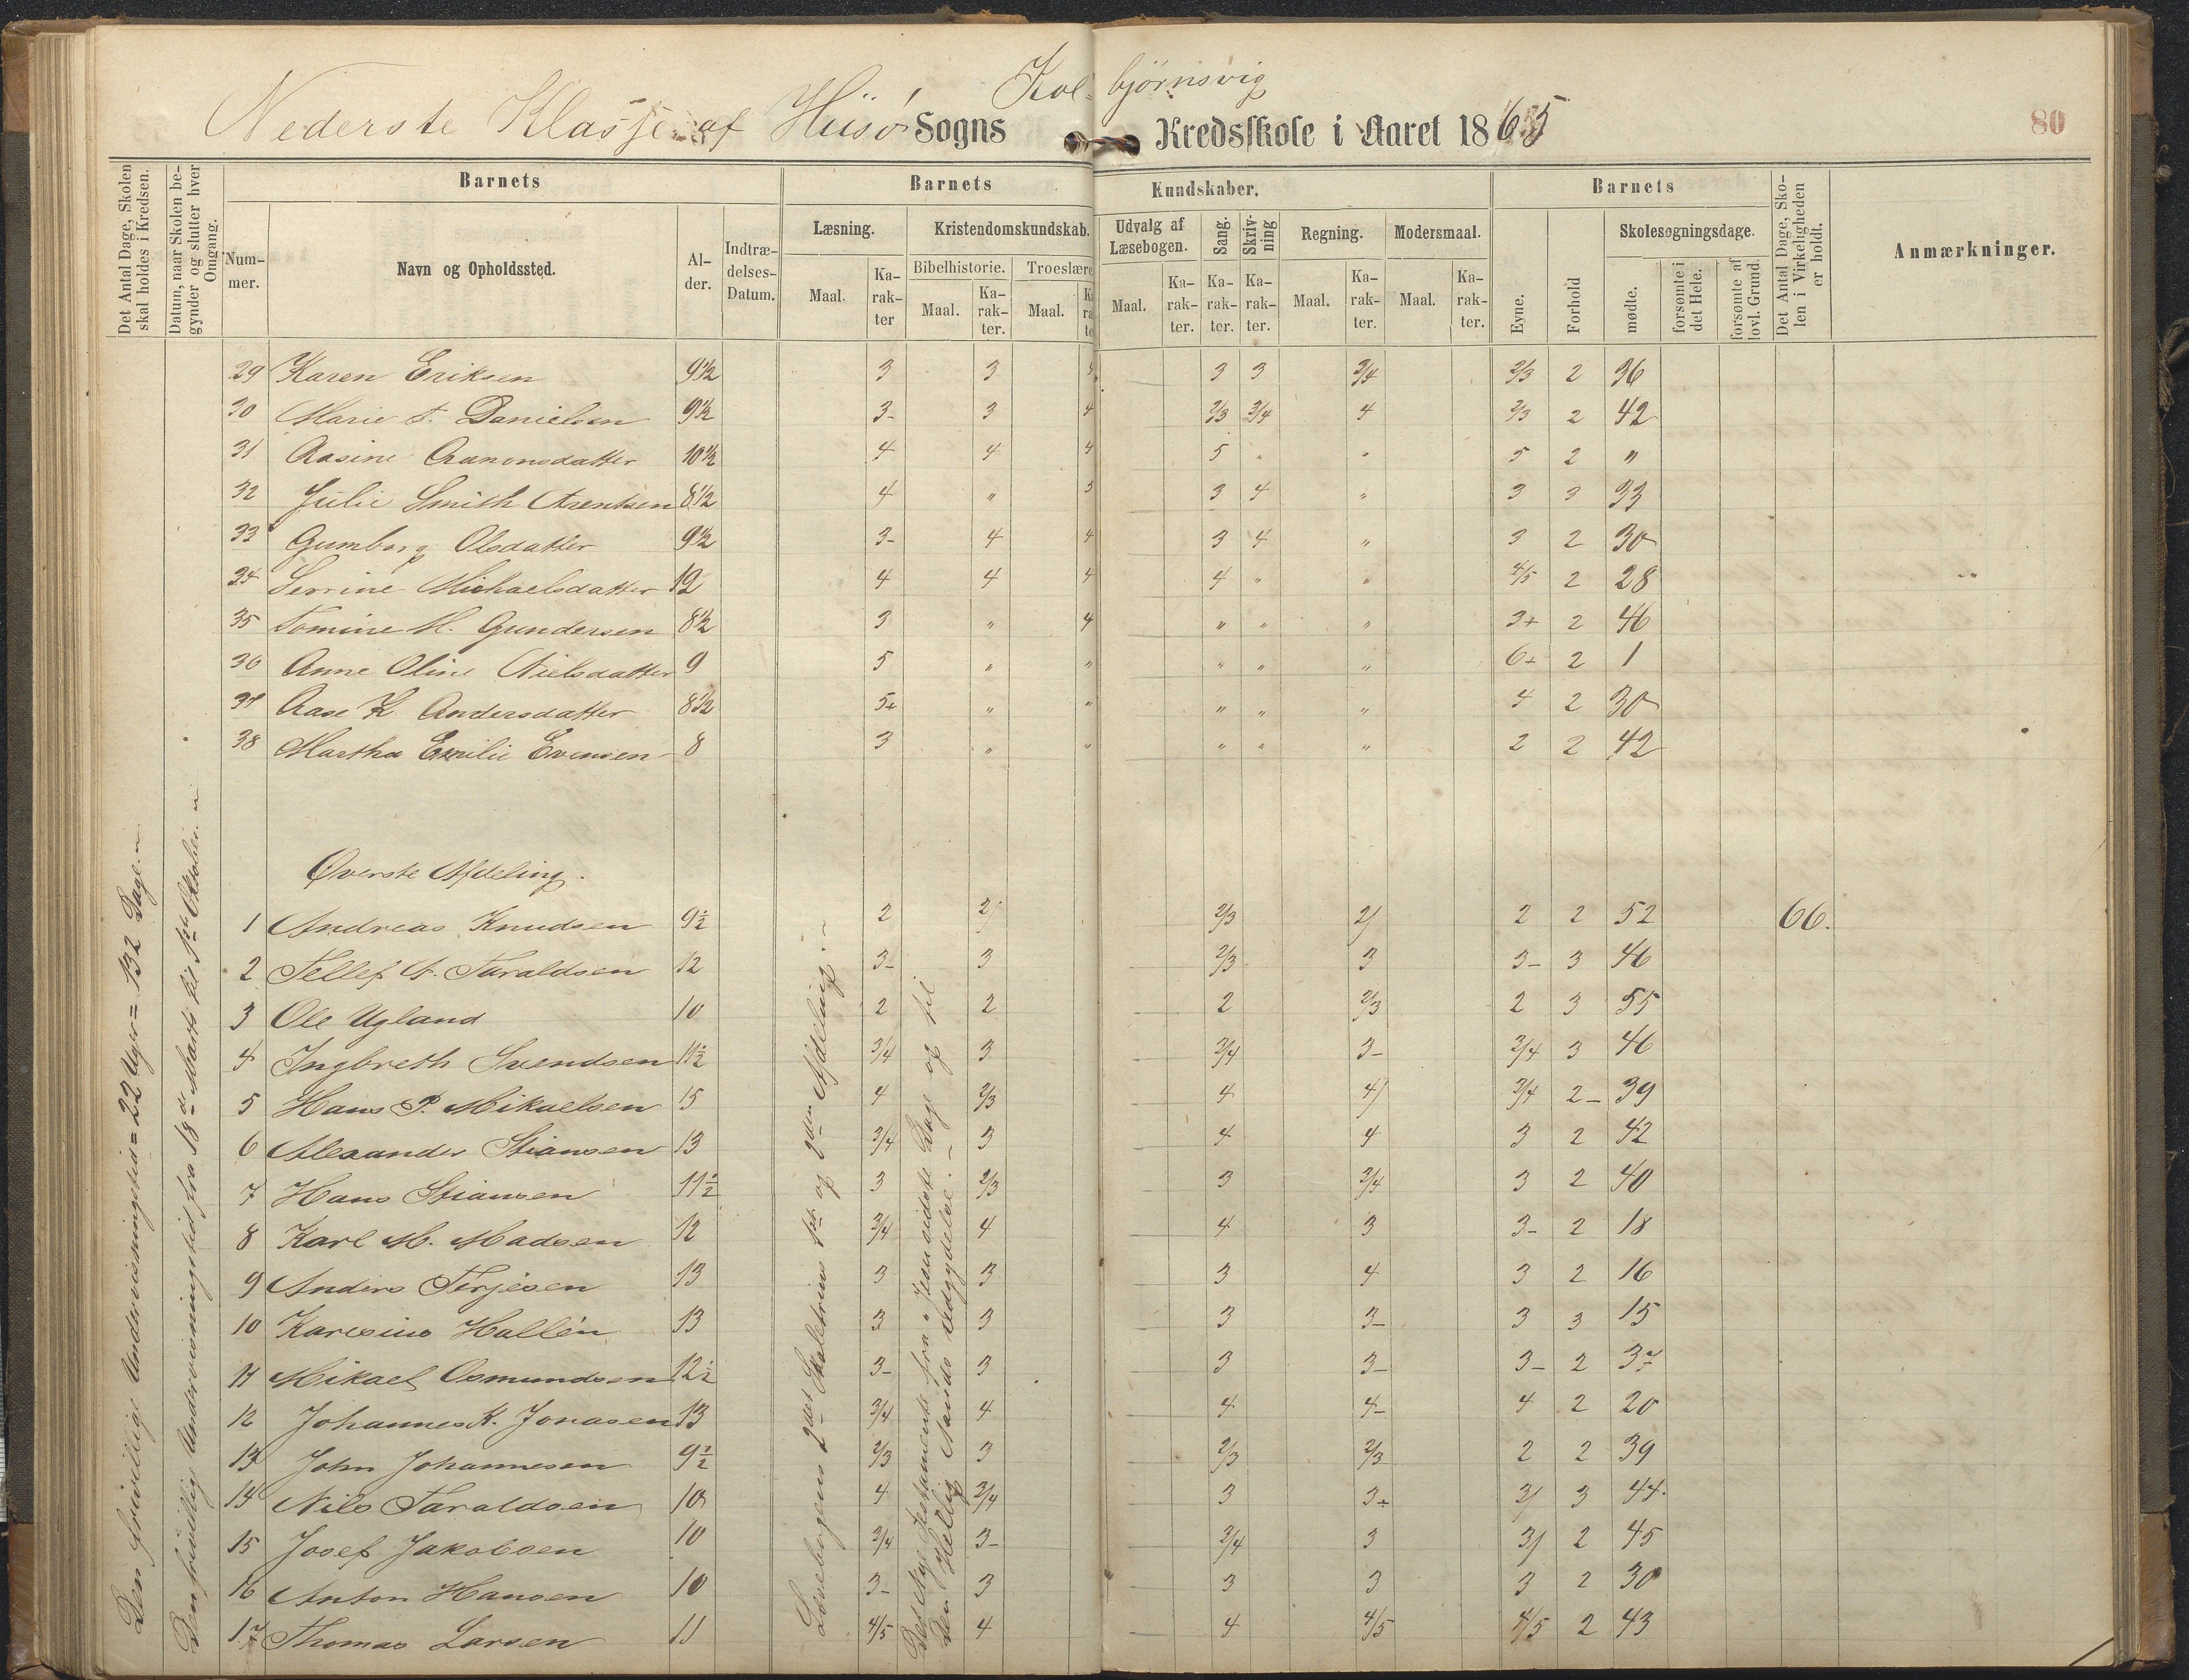 Nederste Klasse af Hüsö Sogns Kolbjørnsvig Kredsskole i Aaret 1865
80
Det Antal Dage, Skolen skal holdes i Kredsen.
Datum, naar Skolen begynder og slutter hver Omgang.
Barnets
Barnets
Kundskaber.
Barnets
Det Antal Dage, Skolen i Virkeligheden er holdt.
Anmærkninger.
Nummer.
Navn og Opholdssted.
Alder.
Indtrædelses-Datum.
Læsning.
Kristendomskundskab.
Udvalg af Læsebogen.
Sang.
Skrivning
Regning.
Modersmaal.
Evne.
Forhold
Skolesøgningsdage.
Bibelhistorie.
Troeslære
Maal.
Karakter
Maal.
Karakter.
Maal.
Maal.
Karakter.
Karakter.
Karakter.
Maal.
Karakter.
Maal.
Karakter.
mødte.
forsømte i det Hele.
forsømte af lovl. Grund.
29 Karen Eriksen 9½ 3 3 3 3 3/4 2/3 2 36
30 Marie A. Danielsen 9½ 3- 3 4 2/3 3/4 4 2/3 2 42
31 Aasine Aanonsdatter 10½ 4 4 4 5 " " 5 2 "
32 Julie Smith Arentsen 8½ 4 " 5 3 4 " 3 3 33
33 Gumborg Olsdatter 9½ 3- 4 4 3 4 " 3 2 30
34 Serrine Michaelsdatter 12 4 4 4 4 " " 4/5 2 28
35 Tomine M. Gundersen 8½ 3 " 4 " " " 3+ 2 46
36 Anne Oline Nielsdatter 9 5 " " " " " 6+ 2 1
37 Aase K. Andersdatter 8½ 5+ " " " " " 4 2 30
38 Martha Emilie Evensen 8 3 " " " " " 2 2 42
Øverste Afdeling.
1 Andreas Knudsen 9½ 2 2/ 2/3 2/ 2 2 52 66.
2 Tellef A. Taraldsen 12 3- 3 2/3 3 3- 3 46
3 Ole Ugland 10 2 2 2 2/3 2 3 55
4 Ingbreth Svendsen 11½ 3/4 3 3/4 3- 3/4 3 46
5 Hans P. Mikaelsen 15 4 2/3 4 4/ 3/4 2- 39
6 Alexander Stiansen 13 3/4 3 4 4 3 2 42
7 Hans Stiansen 11½ 3 2/3 3 3/4 3 2 40
8 Karl M. Madsen 12 3/4 4 4 3 3- 2 18
9 Anders Terjesen 13 3 3 3 4 3 2 16
10 Karesius Hallén 13 3 3 3 3- 3 3 15
11 Mikael Osmundsen 12½ 3- 3 3 3- 3- 2 37
12 Johannes K. Jonasen 13 3/4 4 4 4- 4 2 20
13 John Johannesen 9½ 2/3 3 2/3 2/3 2 2 39
14 Nils Taraldsen 10 4 3/4 3 3+ 3/ 3 44.
15 Josef Jakobsen 10 3/4 3- 3/4 3 3/ 2 45
16 Anton Hansen 10 3- 3 3 3 3 2 30
17 Thomas Larsen 11 4/5 4 4 4/5 4/5 2 43
Den frivillige Undervisningstid = 22 Uger = 132 Dage.
Den frivillige Undervisningstid fra 18de Marts til 1ste Oktober.
Læsebogens 2det Skoletrins 1ste og 2den Afdeling.
Det Nye Testamente fra Jesu sidste Dage og til
Den Hellig Aands Udgydelse.